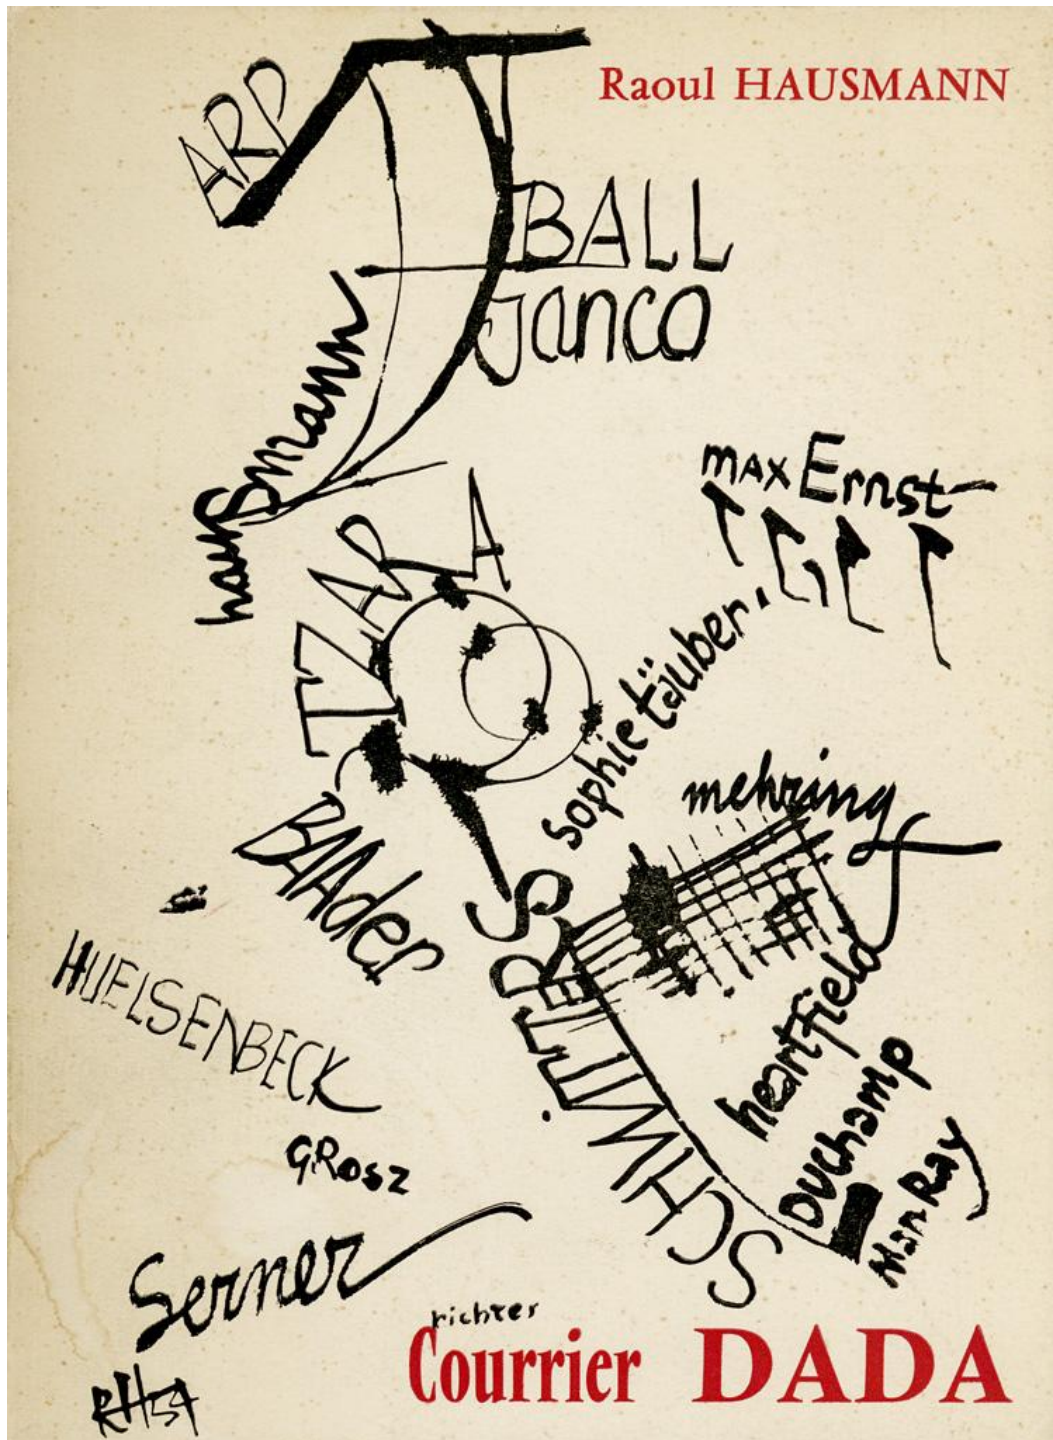 Raoul HAUSMANN
ARP
BALL
Janco
hausmann
max Ernst
TZARA
sophie täuber
mehring
BAAder
SCHWiTTERS
HUELSENBECK
heartfield
DUchamp
Man Ray
GRosz
Serner
richter
Courrier DADA
RH54